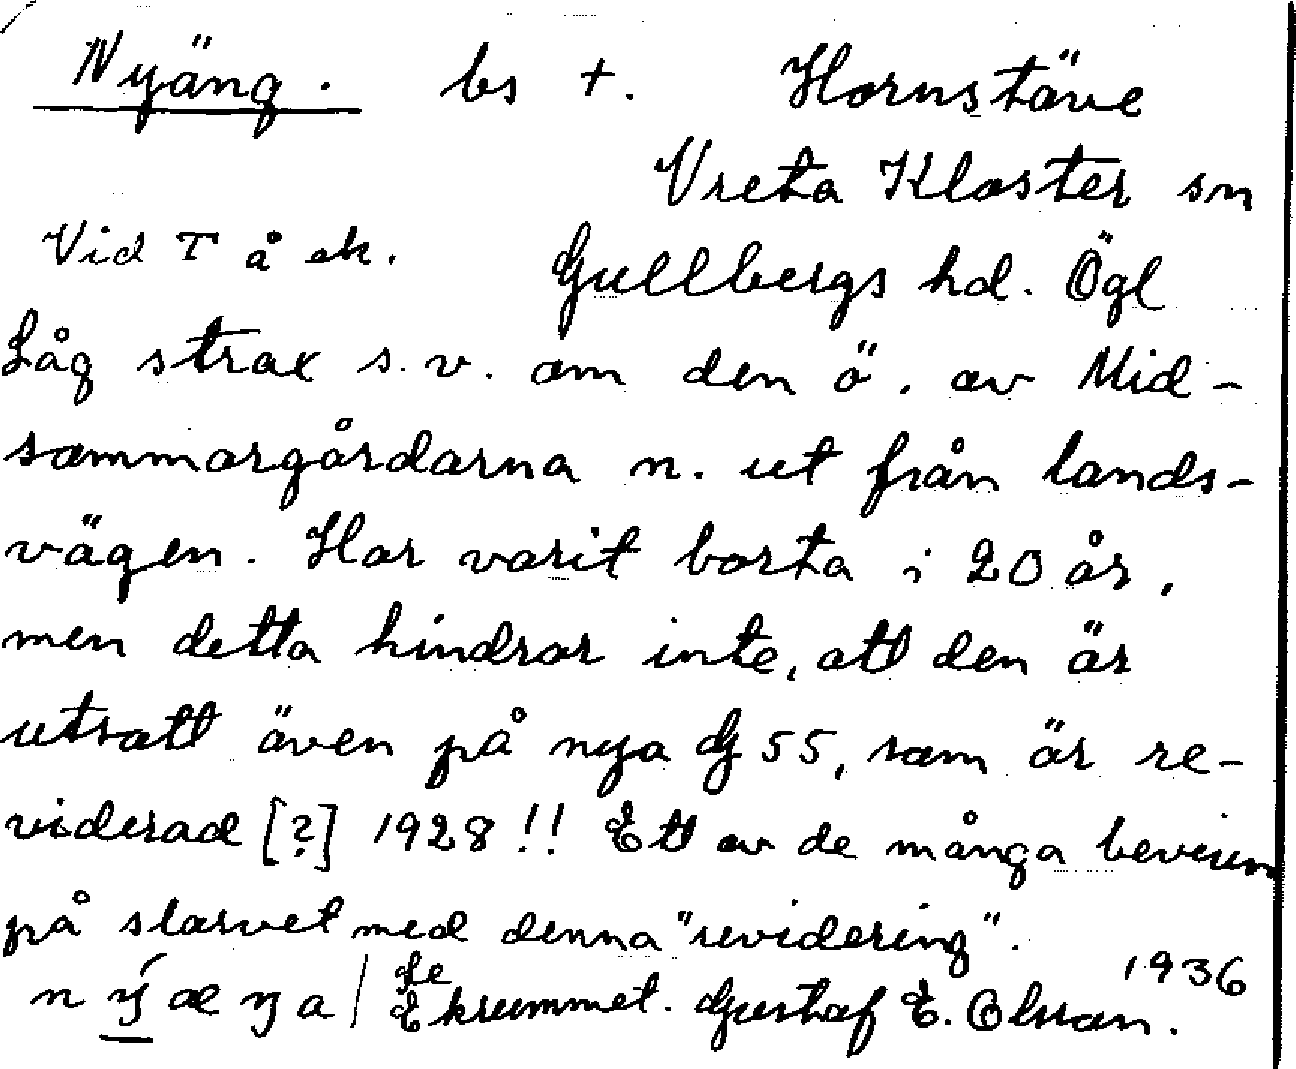 Nyäng. bs +. Hornstäve
Vreta Kloster sn
Vid T å ek. Gullbergs hd. Ögl
Låg strax s.v. om den ö. av Mid-
sommargårdarna n. ut från lands-
vägen. Har varit borta i 20 år,
men detta hindrar inte, att den är
utsatt även på nya G 55, som är re-
viderad [?] 1928 !! Ett av de många bevisen
på slarvet med denna "revidering".
n ý æ ŋ a / Le Ekrummet. Gustaf E. Olsson. 1936